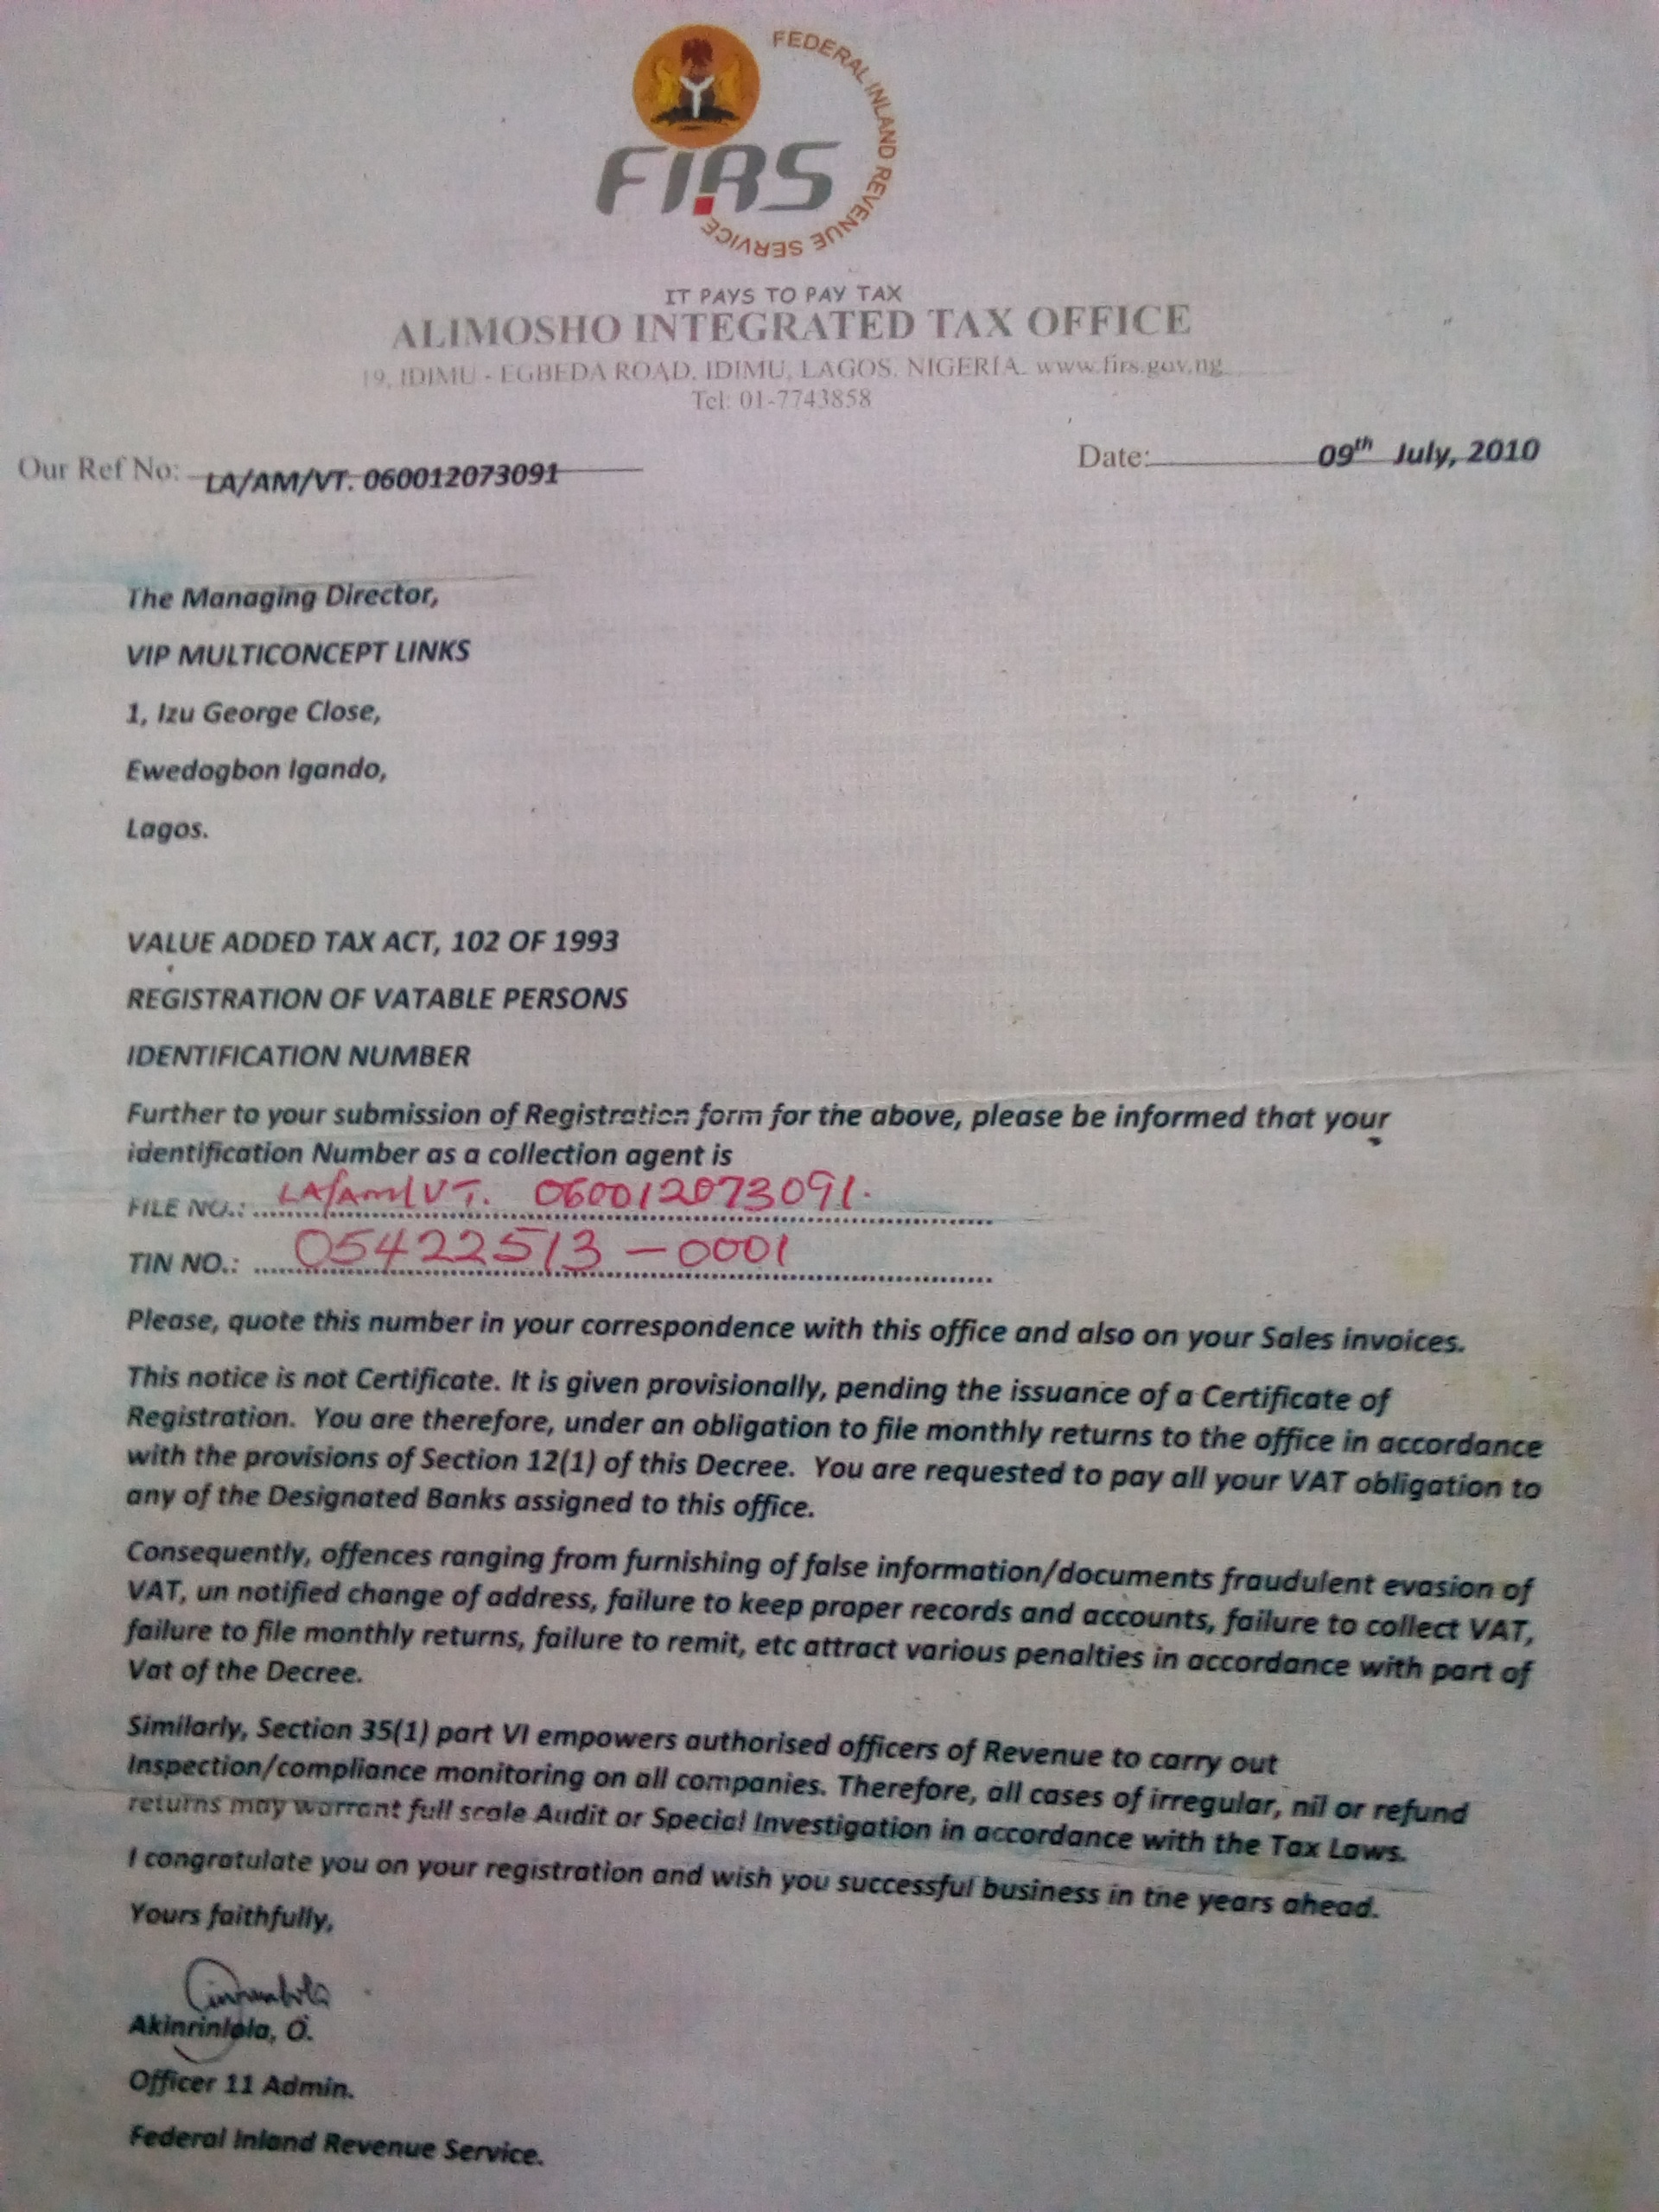 FEDERAL INLAND REVENUE SERVICE
FIRS
IT PAYS TO PAY TAX
ALIMOSHO INTEGRATED TAX OFFICE
19, IDIMU - EGBEDA ROAD, IDIMU, LAGOS, NIGERIA. www.firs.gov.ng
Tel: 01-7743858
Our Ref No: LA/AM/VT. 060012073091 Date: 09th July, 2010
The Managing Director,
VIP MULTICONCEPT LINKS
1, Izu George Close,
Ewedogbon Igando,
Lagos.
VALUE ADDED TAX ACT, 102 OF 1993
REGISTRATION OF VATABLE PERSONS
IDENTIFICATION NUMBER
Further to your submission of Registration form for the above, please be informed that your
identification Number as a collection agent is
FILE NO.: LA/AM/VT. 060012073091.
TIN NO.: 05422513 - 0001
Please, quote this number in your correspondence with this office and also on your Sales invoices.
This notice is not Certificate. It is given provisionally, pending the issuance of a Certificate of
Registration. You are therefore, under an obligation to file monthly returns to the office in accordance
with the provisions of Section 12(1) of this Decree. You are requested to pay all your VAT obligation to
any of the Designated Banks assigned to this office.
Consequently, offences ranging from furnishing of false information/documents fraudulent evasion of
VAT, un notified change of address, failure to keep proper records and accounts, failure to collect VAT,
failure to file monthly returns, failure to remit, etc attract various penalties in accordance with part of
Vat of the Decree.
Similarly, Section 35(1) part VI empowers authorised officers of Revenue to carry out
Inspection/compliance monitoring on all companies. Therefore, all cases of irregular, nil or refund
returns may warrant full scale Audit or Special Investigation in accordance with the Tax Laws.
I congratulate you on your registration and wish you successful business in the years ahead.
Yours faithfully,
Akinrinlola, O.
Officer 11 Admin.
Federal Inland Revenue Service.